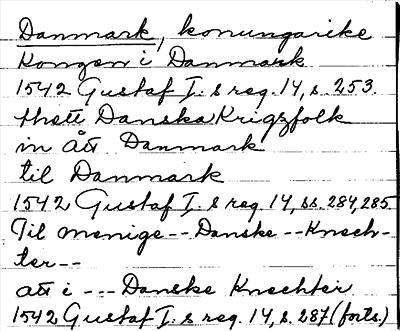 Danmark, konungarike
Kongen i Danmark
1542 Gustaf I:s reg. 14, s. 253.
thett Danska Krigzfolk
in ått Danmark
til Danmark
1542 Gustaf I:s reg. 14, ss. 284, 285
Til menige -- Danske -- Knech-
ter --
att i --- Danske Knechter
1542 Gustaf I:s reg. 14, s. 287 (forts.)